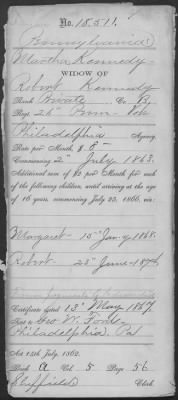 No. 18.511.
Pennsylvania
Martha Kennedy
WIDOW OF
Robert Kennedy
Rank Private Co. B,
Regt. 26" Penn. Vols
Philadelphia Agency.
Rate per Month $ 8-
Commencing 2" July 1863.
Additional sum of $2 per Month for each
of the following children, until arriving at the age
of 16 years, commencing July 25, 1866, viz:
Margaret - 15" Jan'y 1868.
Robert 23" June
Certificate dated 13" May 1867
Sent to Geo. W. Ford
Philadelphia, Pa
Act 14th July, 1862.
Book A Vol. 5 Page 56
Sheffield Clerk.